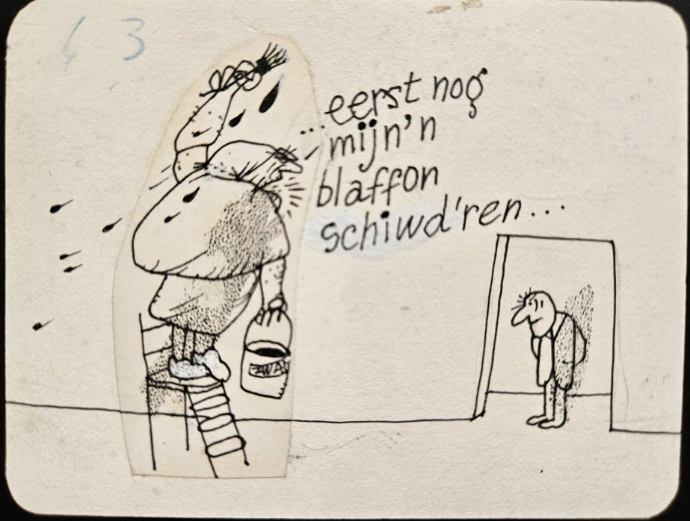 6 3
...eerst nog
mijn'n
blaffon
schiwd'ren...
ZWAL